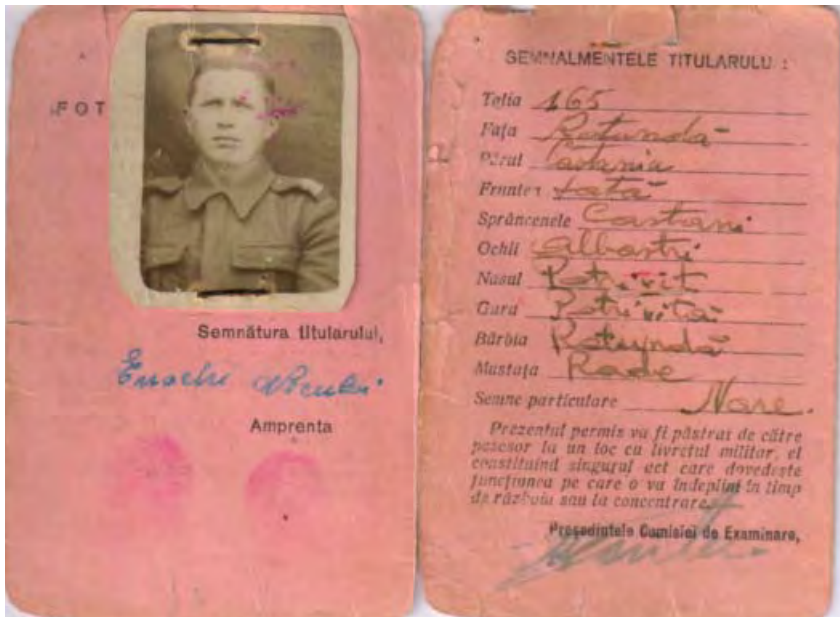 FOT
Semnătura titularului,
Enache
Amprenta
SEMNALMENTELE TITULARULU :
Talia 165
Fața Rotundă
Părul Castaniu
Fruntea Lată
Sprâncenele Castani
Ochii Albaștri
Nasul Potrivit
Gura Potrivită
Bărbia Rotundă
Mustața Rade
Semne particulare Nare.
Prezentul permis va fi păstrat de către
posesor la un loc cu livretul militar, el
constituind singurul act care dovedește
funcțiunea pe care o va îndeplini în timp
de războiu sau la concentrare.
Președintele Comisiei de Examinare,